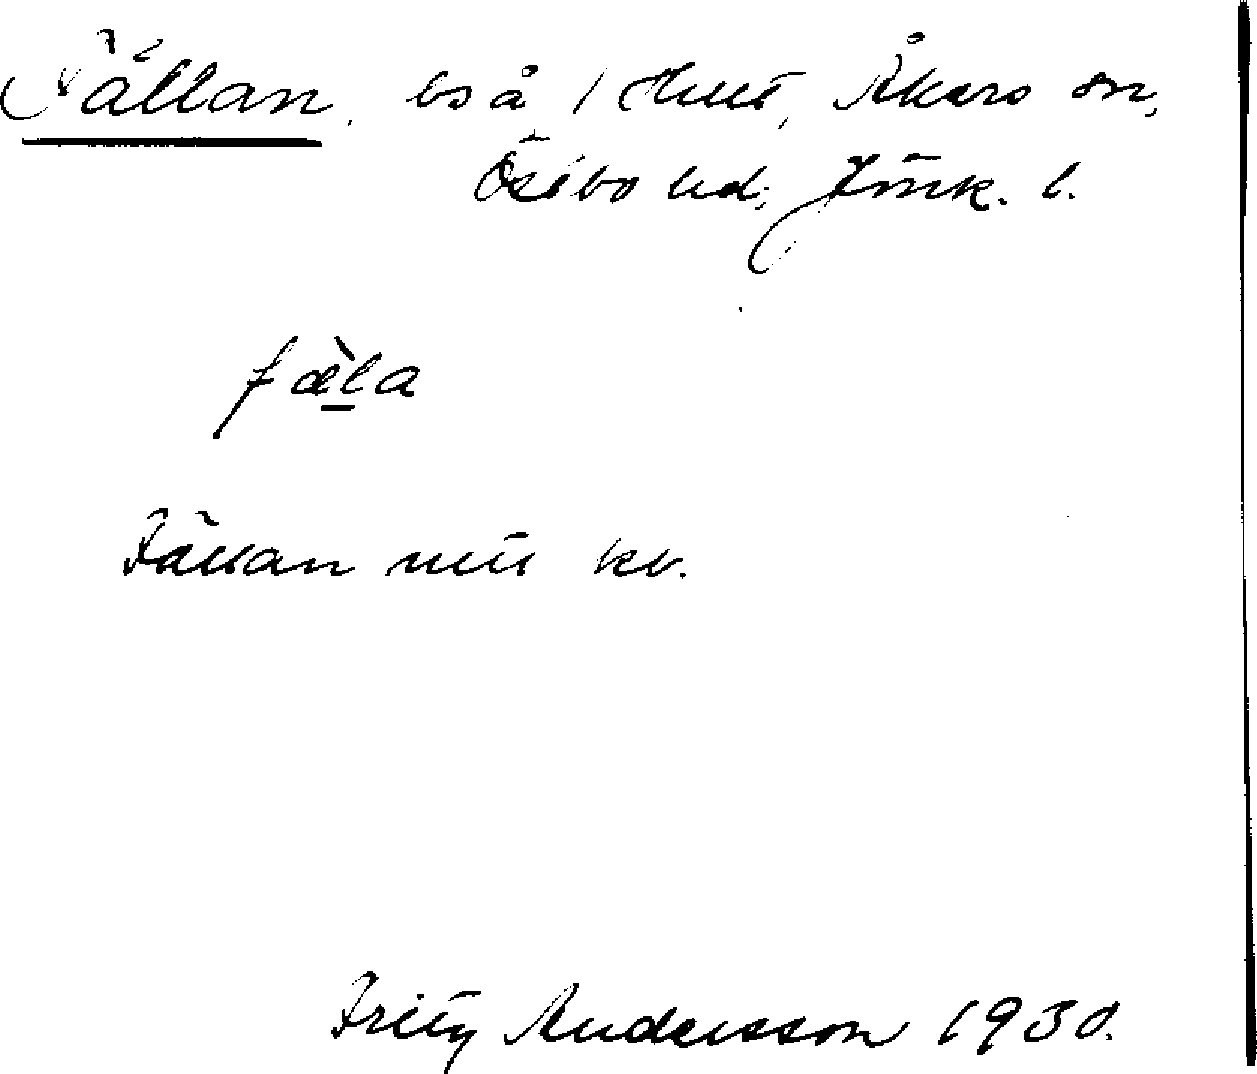 Fällan, bs å 1 Hult, Åkers sn,
Östbo hd, Jönk. l.
fæ̀la
Fällan mtl kv.
Fritz Andersson 1930.